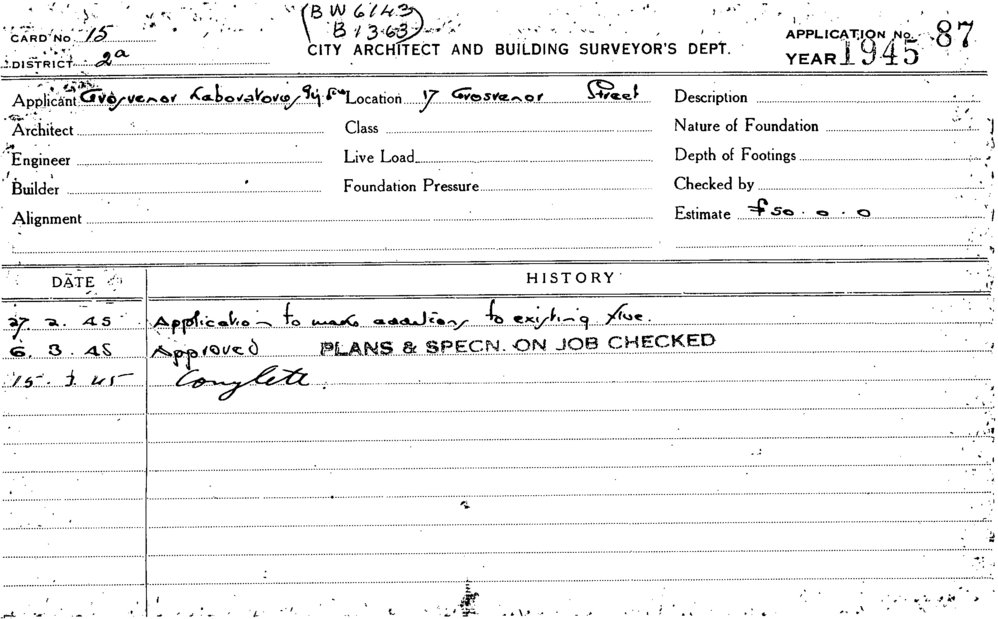 (BW 6143
B 1363)
CARD No 15
CITY ARCHITECT AND BUILDING SURVEYOR'S DEPT.
APPLICATION No. 87
DISTRICT 2a
YEAR 1945
Applicant Grosvenor Laboratories Location 17 Grosvenor Street Description
Architect Class Nature of Foundation
Engineer Live Load Depth of Footings
Builder Foundation Pressure Checked by
Alignment Estimate £50.0.0
DATE HISTORY
27. 2. 45 Application to make additions to existing flue.
6. 3. 45 Approved PLANS & SPECN. ON JOB CHECKED
15. 45 Complete.